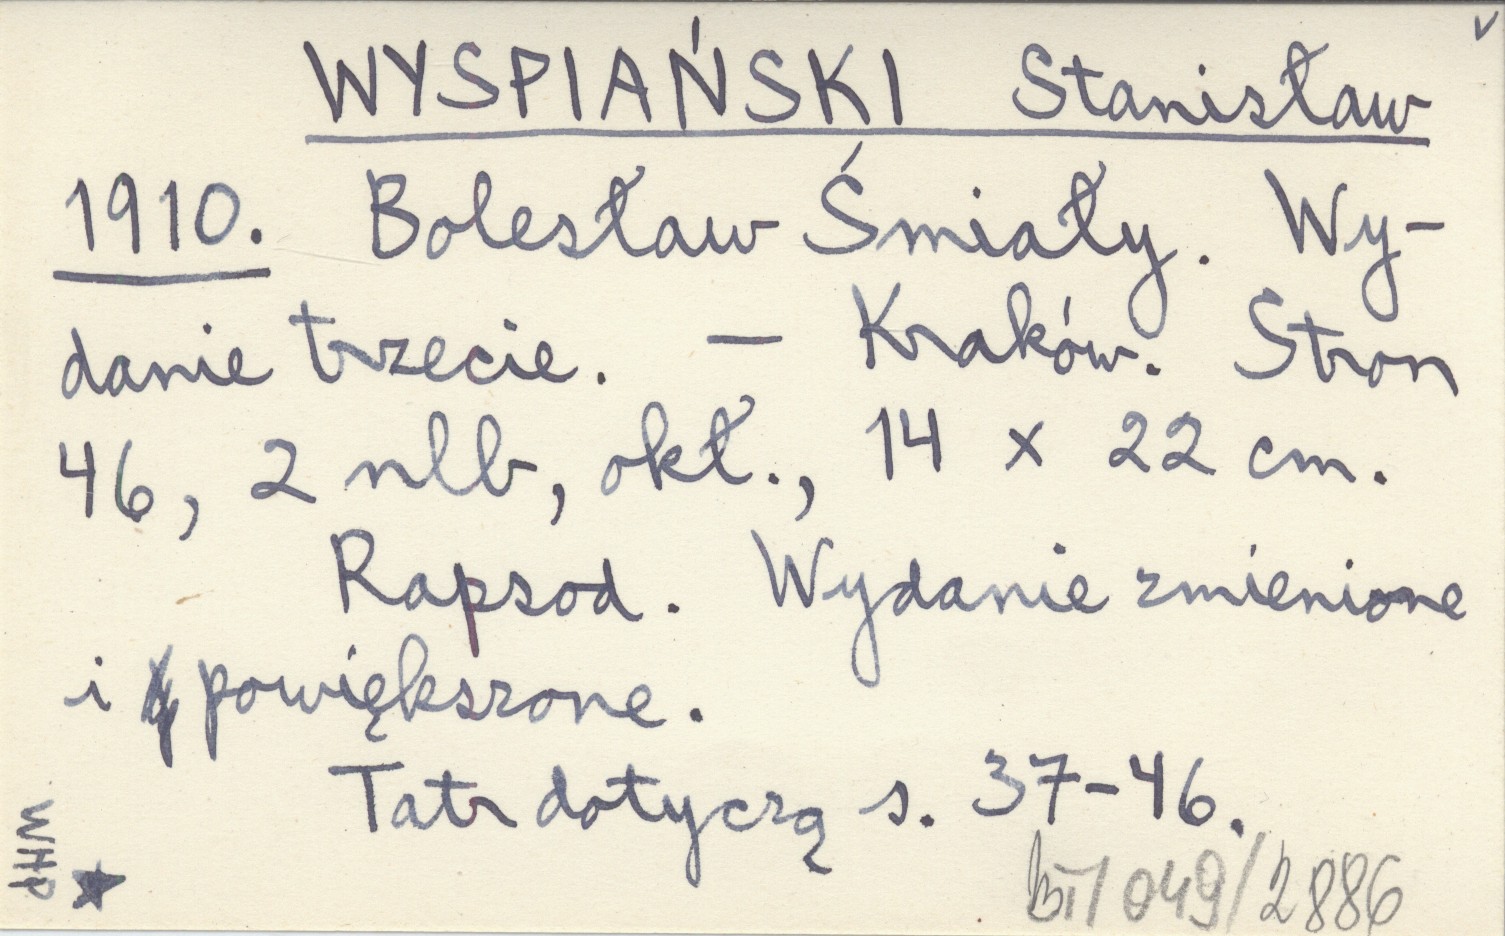 WYSPIAŃSKI Stanisław
1910. Bolesław Śmiały. Wy-
danie trzecie. — Kraków. Stron
46, 2 nlb, okł., 14 x 22 cm.
Rapsod. Wydanie zmienione
i powiększone.
Tatr dotyczą s. 37-46.
WHP
BT/049/2886